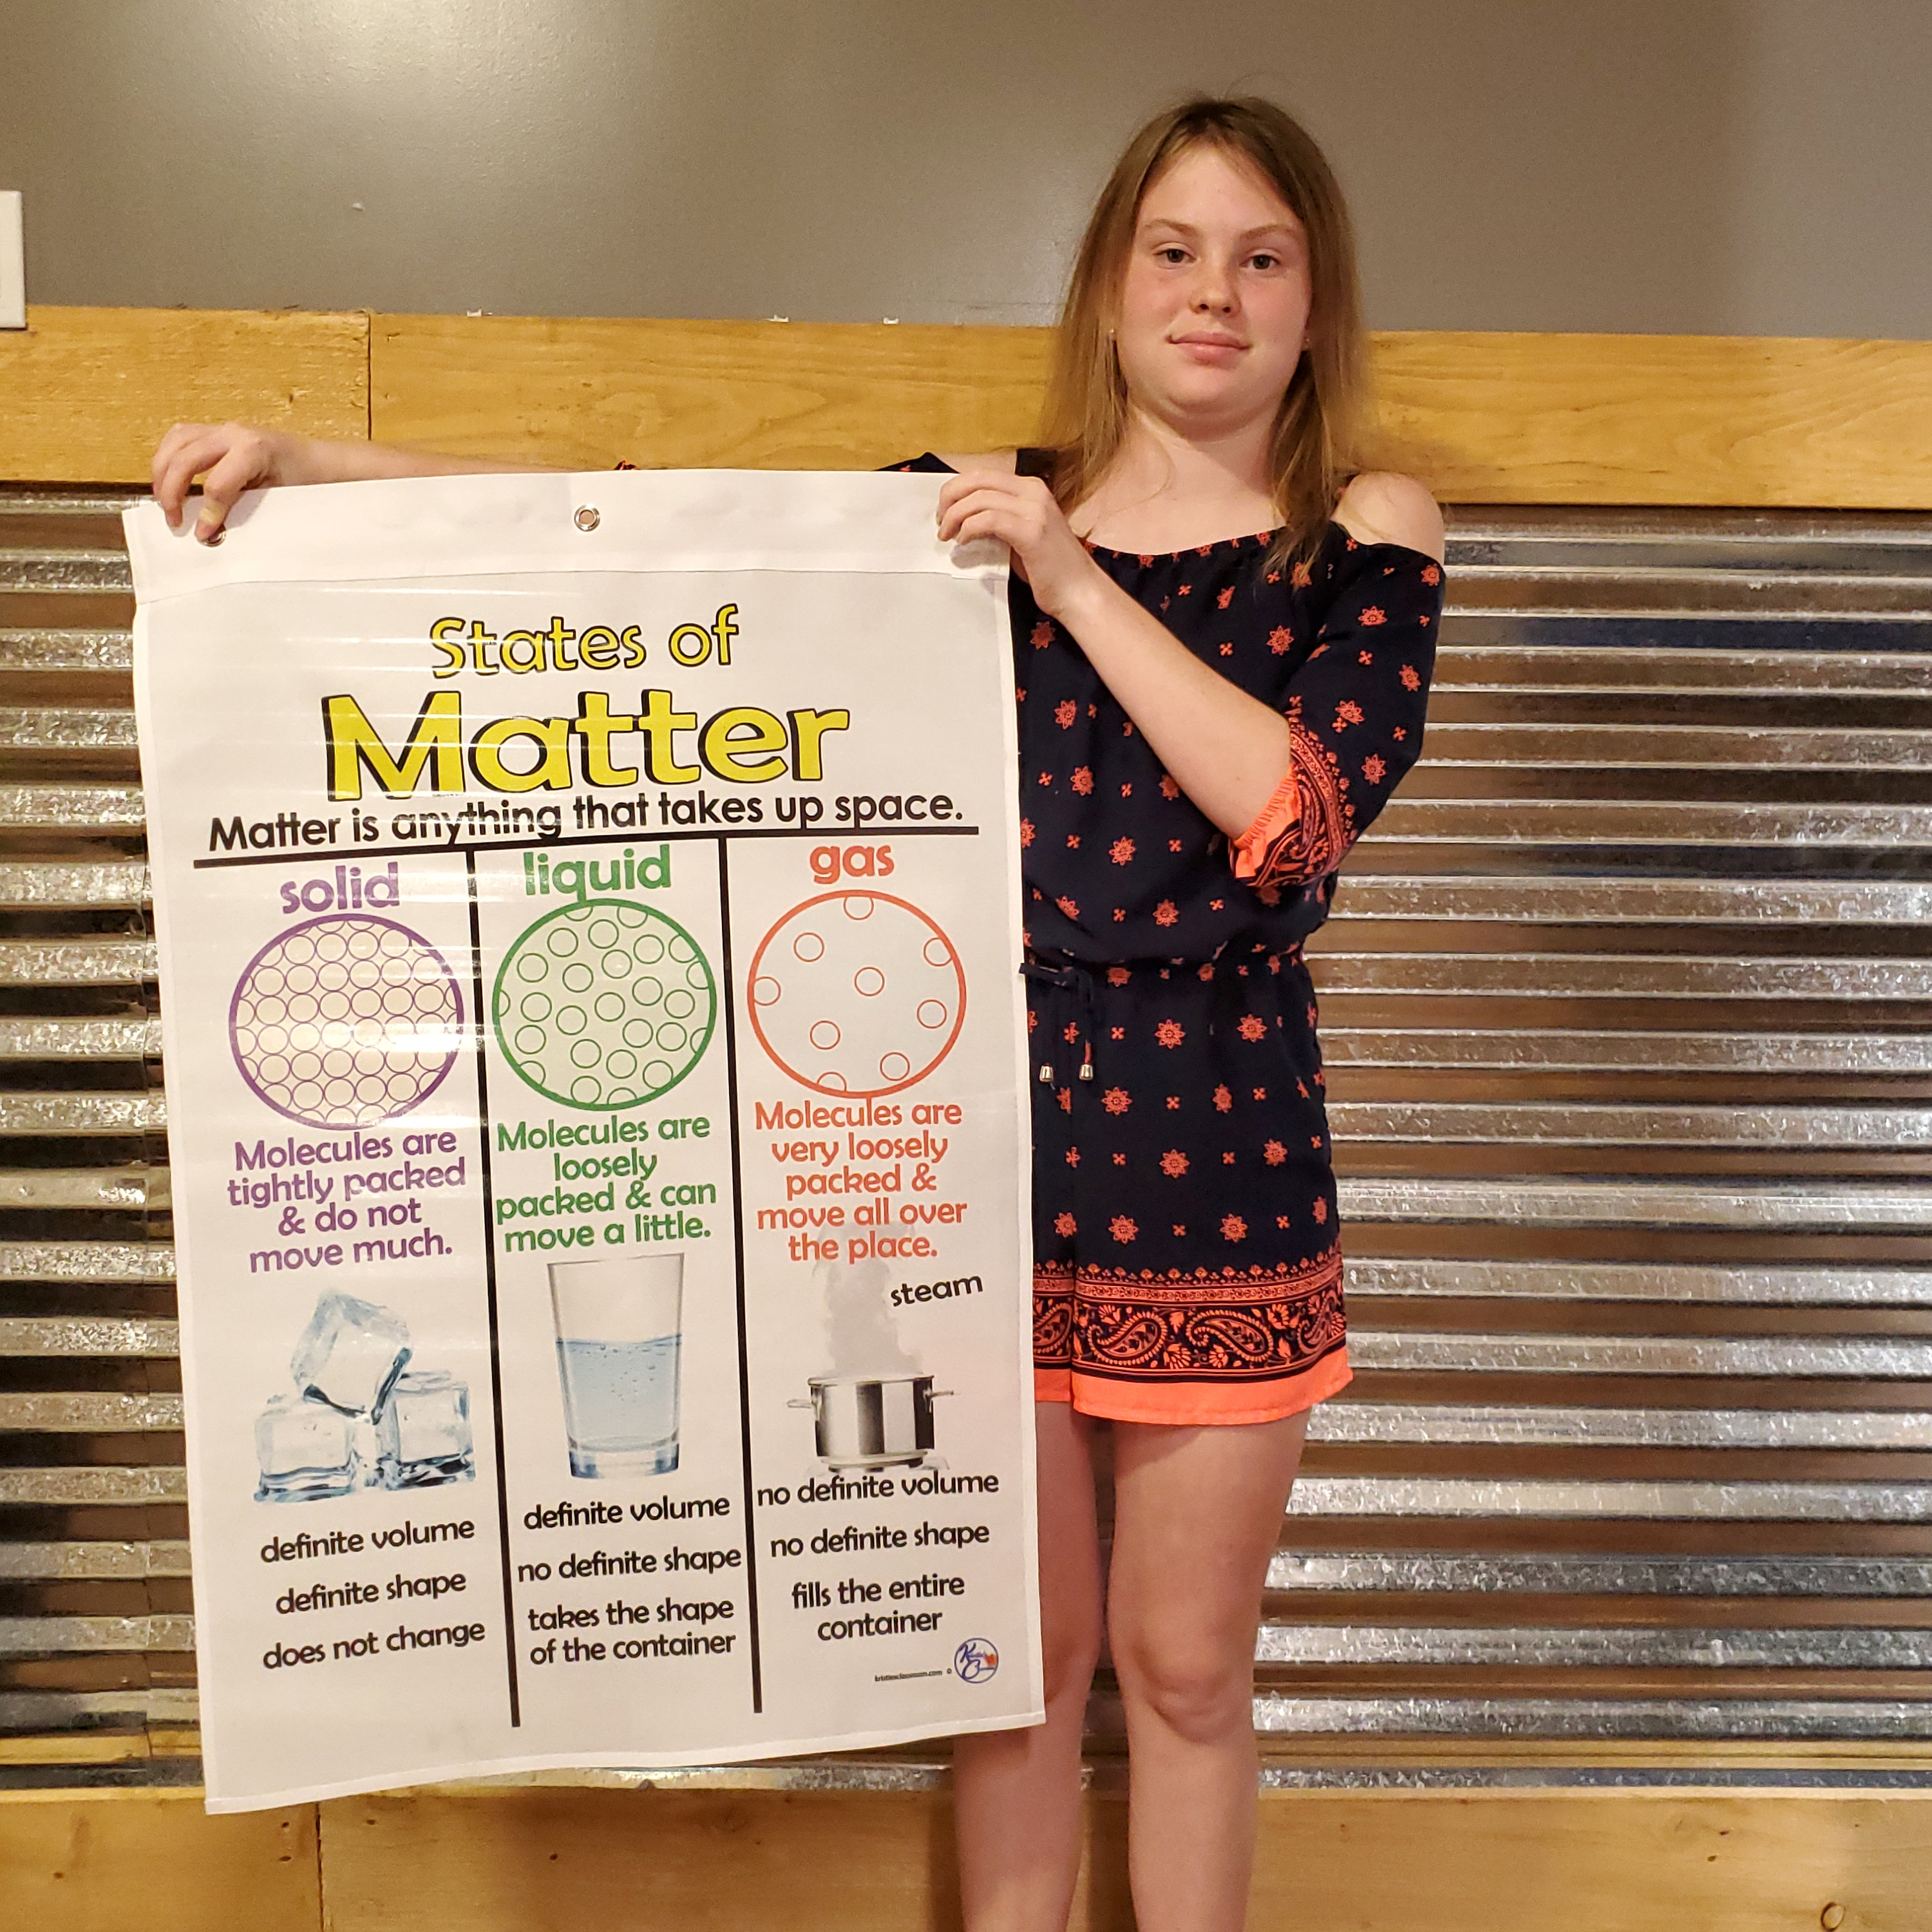 States of
Matter
Matter is anything that takes up space.
solid
Molecules are
tightly packed
& do not
move much.
definite volume
definite shape
does not change
liquid
Molecules are
loosely
packed & can
move a little.
definite volume
no definite shape
takes the shape
of the container
gas
Molecules are
very loosely
packed &
move all over
the place.
steam
no definite volume
no definite shape
fills the entire
container
kristiesclassroom.com ©